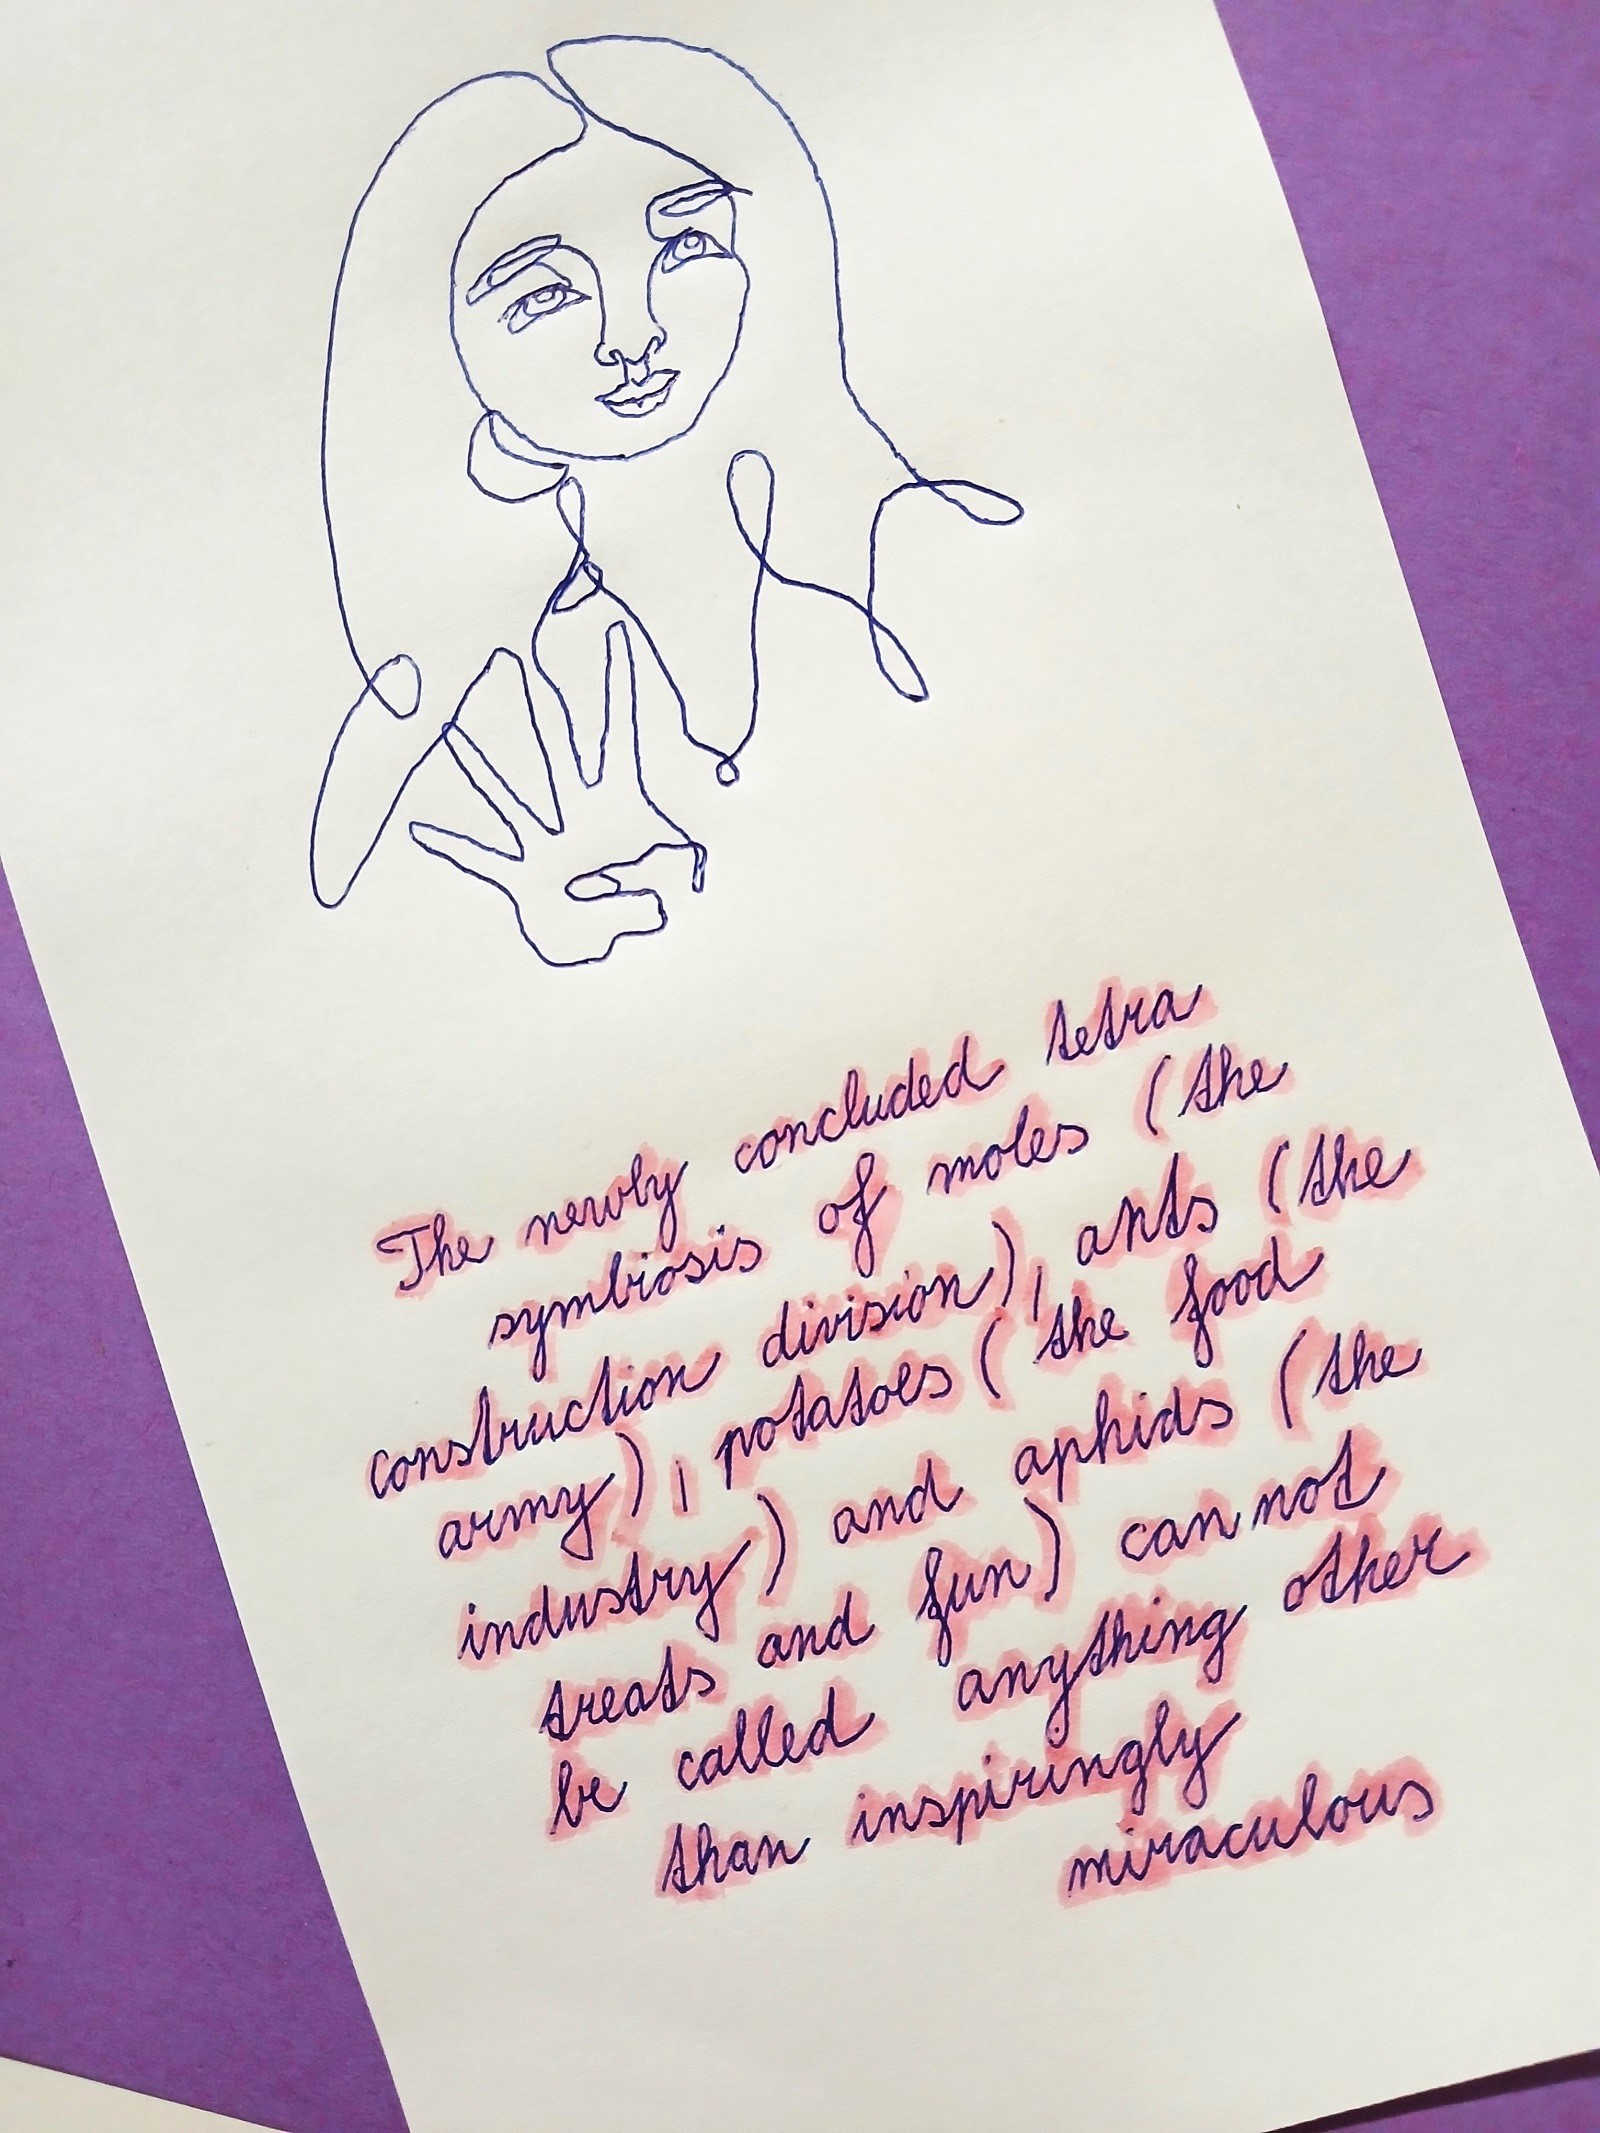 The newly concluded tetra
symbiosis of moles (the
construction division), ants (the
army), potatoes (the food
industry) and aphids (the
treats and fun) can not
be called anything other
than inspiringly
miraculous